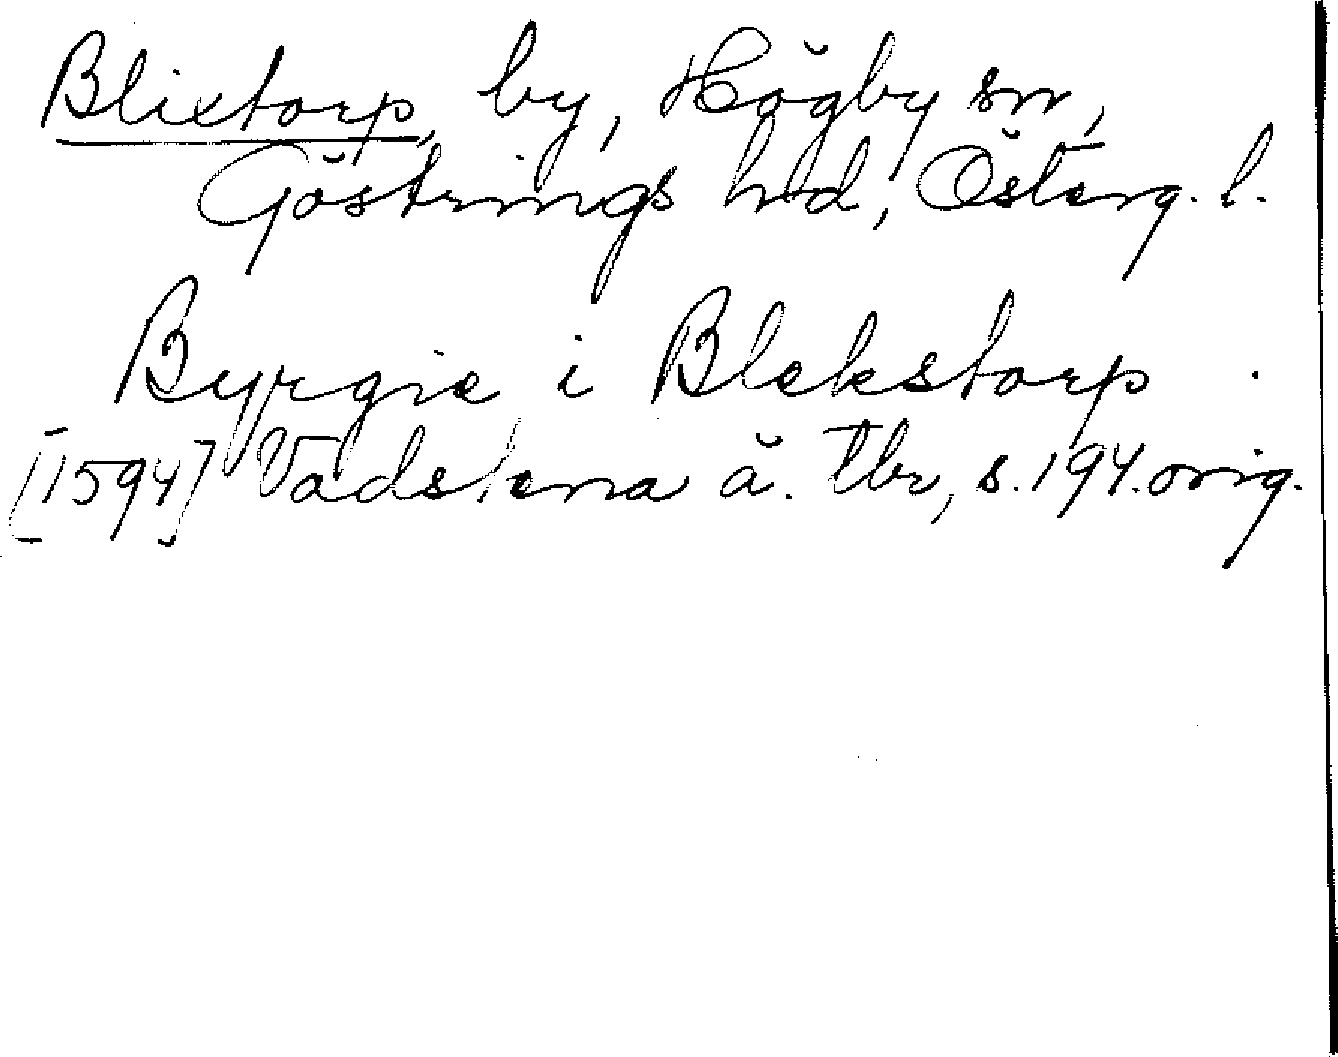 Blixtorp, by, Högby sn,
Göstrings hd, Österg. l.
Byrgie i Blekstorp .
[1594] Vadstena ä. Tbr, s. 194. orig.